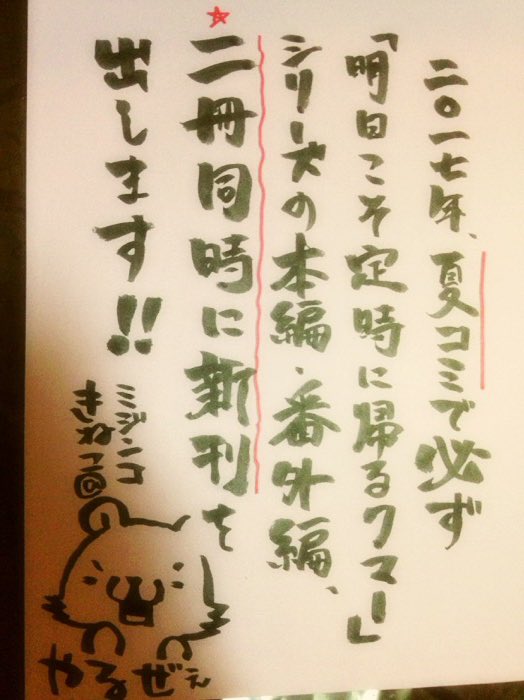 二〇一七年、夏コミで必ず
「明日こそ定時に帰るクマー」
シリーズの本編・番外編、
二冊同時に新刊を
出します!!
ミジンコ
きねつ@
やるぜぇ